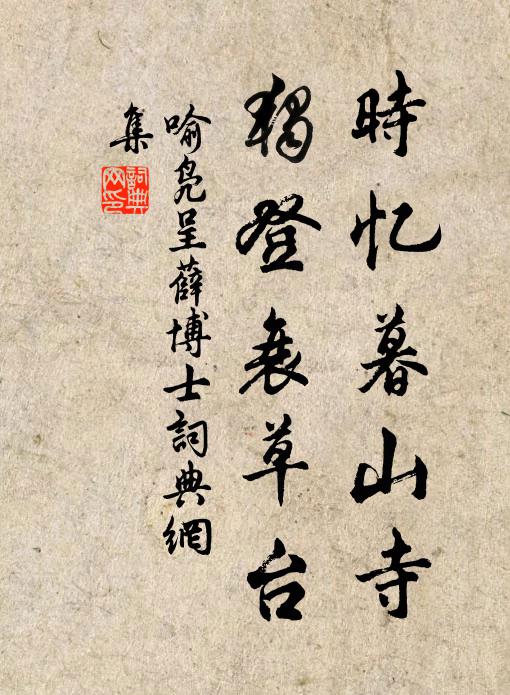 時忆暮山寺
独登衰草台
喻凫呈薛博士詞典網
集
詞典
网印